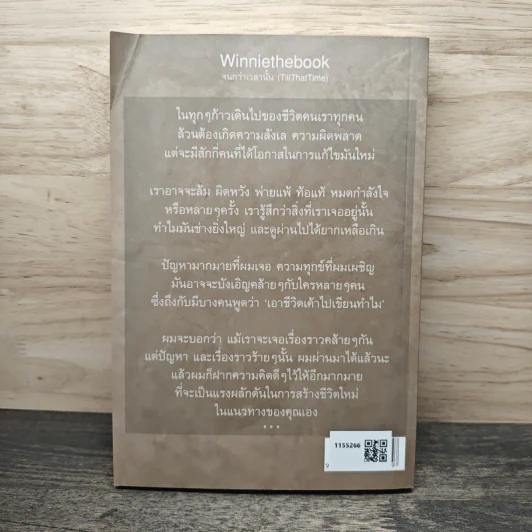 Winniethebook
จนกว่าเวลานั้น (TillThatTime)
ในทุกๆก้าวเดินไปของชีวิตคนเราทุกคน
ล้วนต้องเกิดความลังเล ความผิดพลาด
แต่จะมีสักกี่คนที่ได้โอกาสในการแก้ไขมันใหม่
เราอาจจะล้ม ผิดหวัง พ่ายแพ้ ท้อแท้ หมดกำลังใจ
หรือหลายๆครั้ง เรารู้สึกว่าสิ่งที่เราเจออยู่นั้น
ทำไมมันช่างยิ่งใหญ่ และดูผ่านไปได้ยากเหลือเกิน
ปัญหามากมายที่ผมเจอ ความทุกข์ที่ผมเผชิญ
มันอาจจะบังเอิญคล้ายๆกับใครหลายๆคน
ซึ่งถึงกับมีบางคนพูดว่า 'เอาชีวิตเค้าไปเขียนทำไม'
ผมจะบอกว่า แม้เราจะเจอเรื่องราวคล้ายๆกัน
แต่ปัญหา และเรื่องราวร้ายๆนั้น ผมผ่านมาได้แล้วนะ
แล้วผมก็ฝากความคิดดีๆไว้ให้อีกมากมาย
ที่จะเป็นแรงผลักดันในการสร้างชีวิตใหม่
ในแนวทางของคุณเอง
***
1155266
9